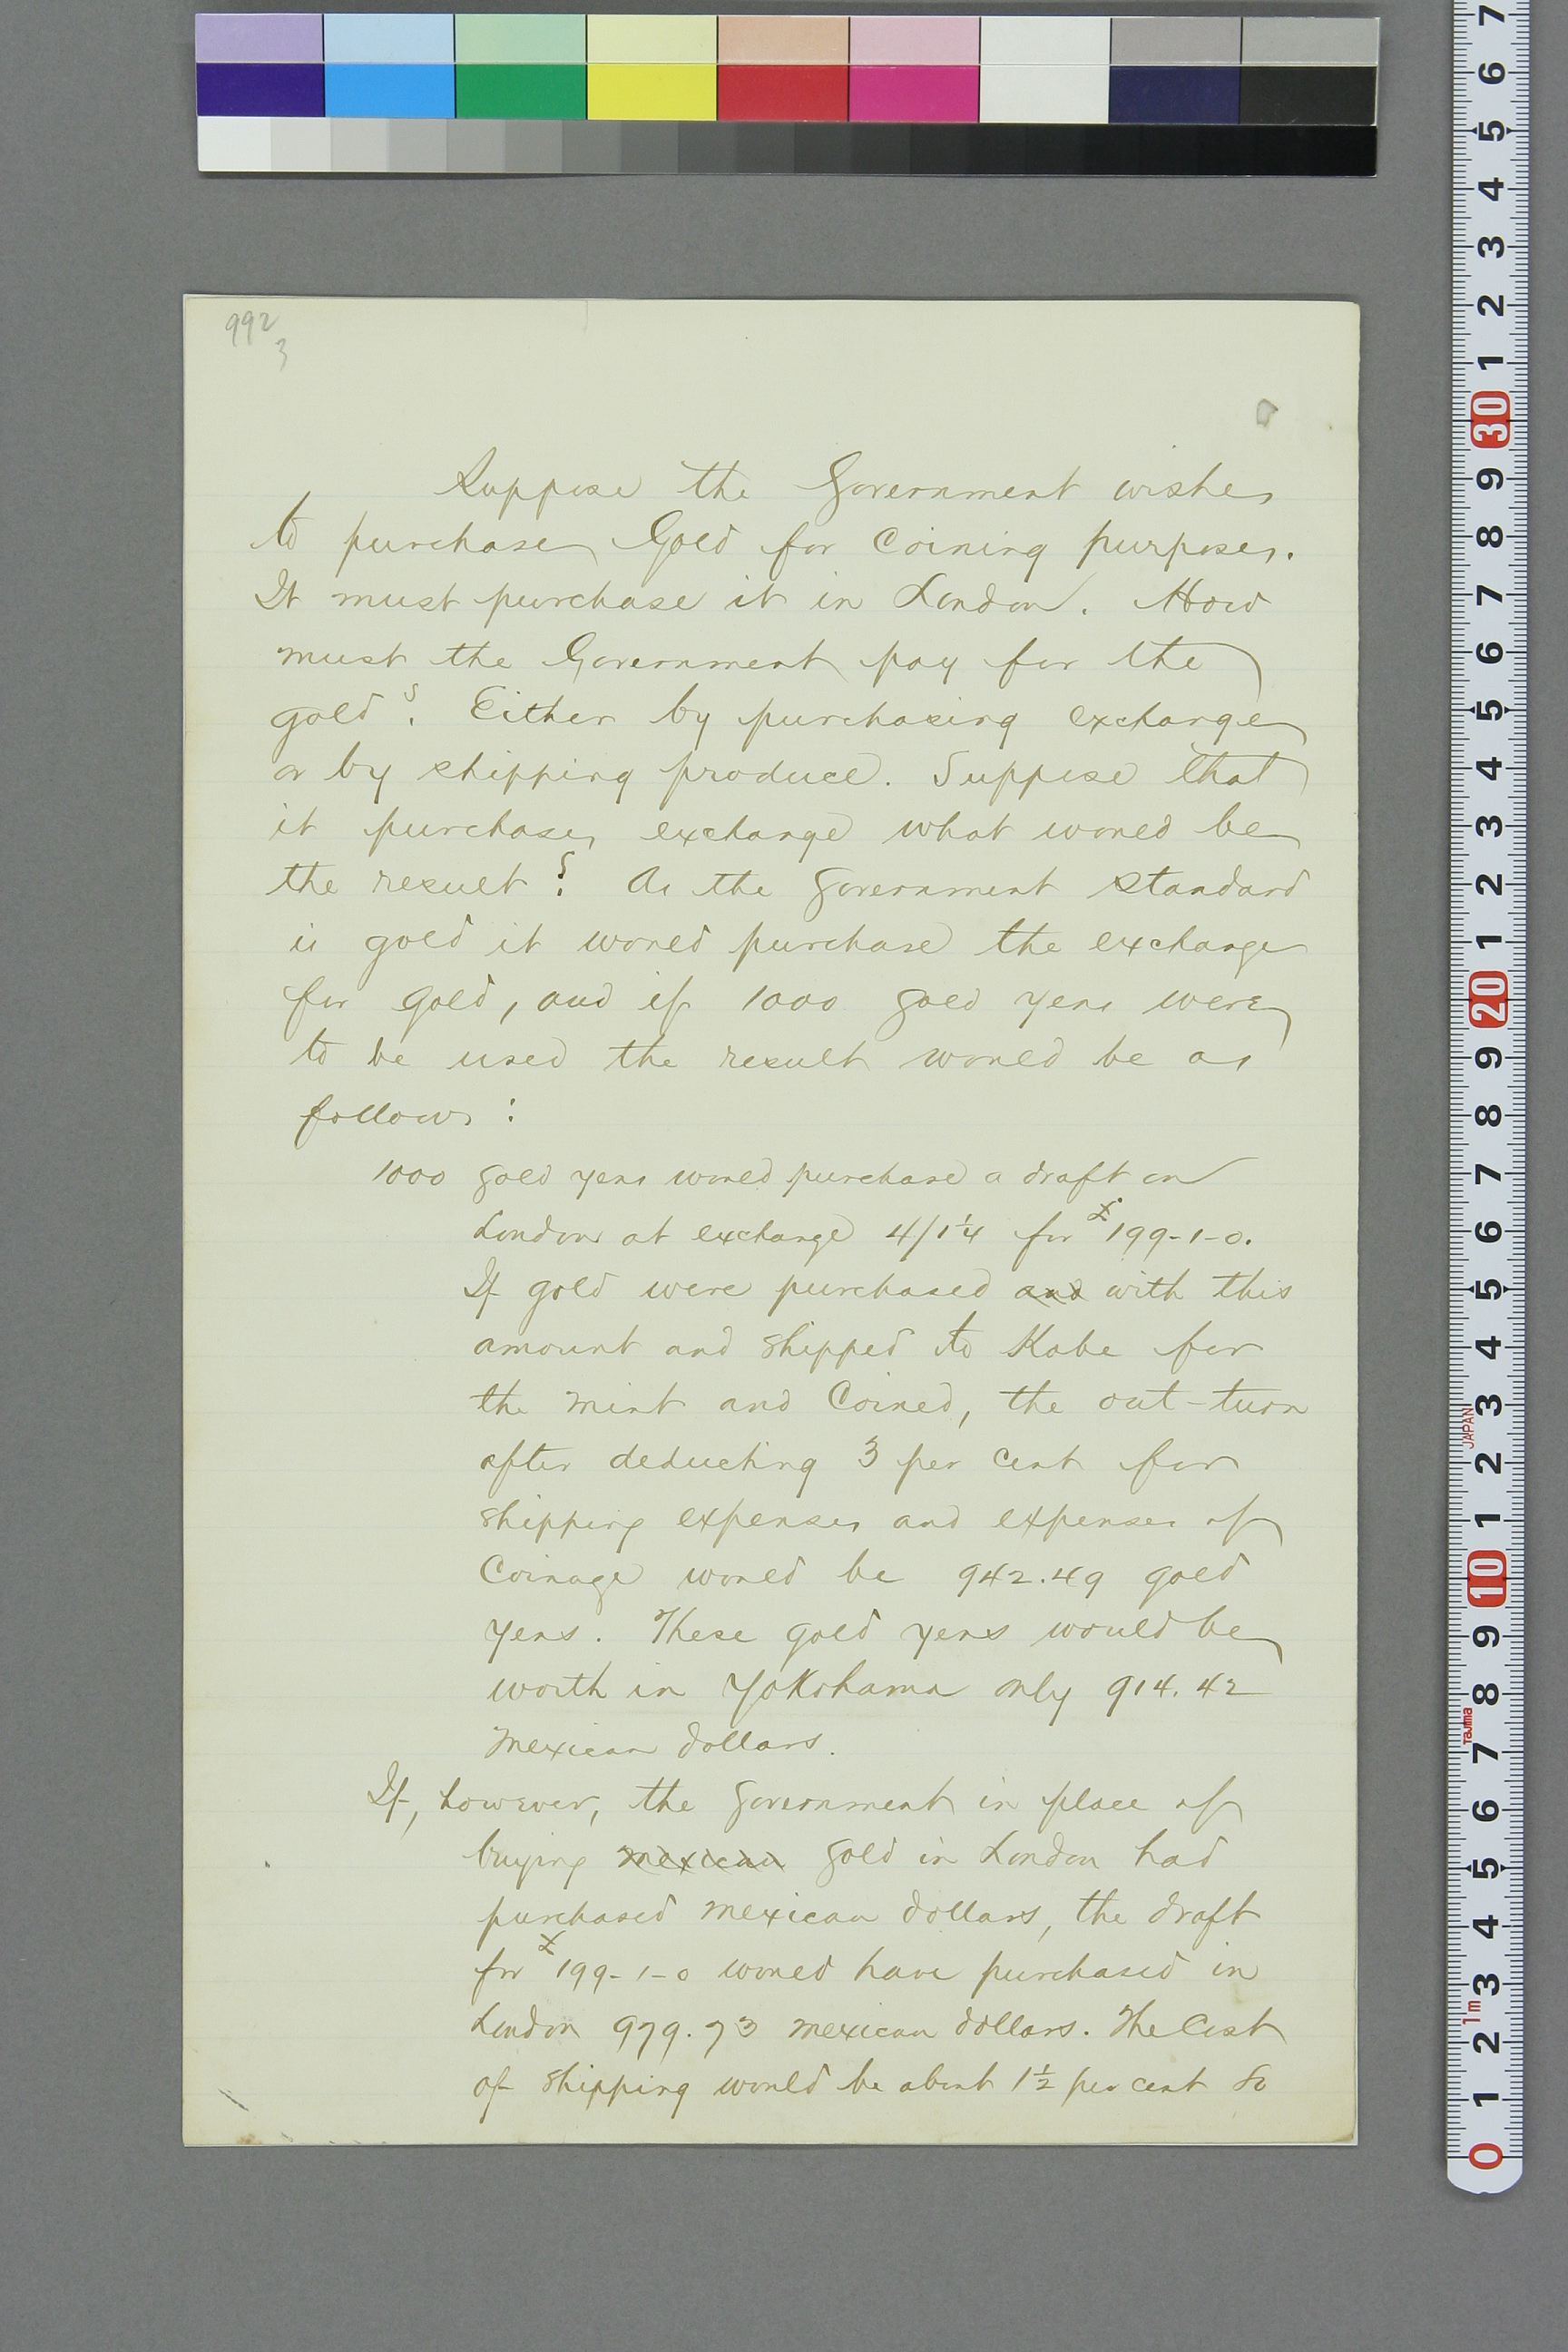 992
3
Suppose the Government wishes
to purchase Gold for Coining purposes.
It must purchase it in London. How
must the Government pay for the
gold? Either by purchasing exchange
or by shipping produce. Suppose that
it purchases exchange what would be
the result? As the Government standard
is gold it would purchase the exchange
for gold, and if 1000 gold yens were
to be used the result would be as
follows:
1000 gold yens would purchase a draft on
London at exchange 4/1¼ for £199-1-0.
If gold were purchased and with this
amount and shipped to Kobe for
the mint and Coined, the out-turn
after deducting 3 per cent for
shipping expenses and expenses of
Coinage would be 942.49 gold
yens. These gold yens would be
worth in Yokohama only 914.42
Mexican dollars.
If, however, the Government in place of
buying mexican gold in London had
purchased Mexican dollars, the draft
for £199-1-0 would have purchased in
London 979.73 Mexican dollars. The Cost
of shipping would be about 1½ per cent So
7
6
5
4
3
2
1
30
9
8
7
6
5
4
3
2
1
20
9
8
7
6
5
4
3
JAPAN
2
1
10
9
8
Tajima
7
6
5
4
3
1m
2
1
0